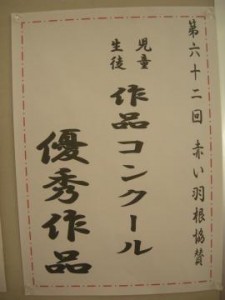 第六十二回 赤い羽根協賛
児童
生徒
作品コンクール
優秀作品